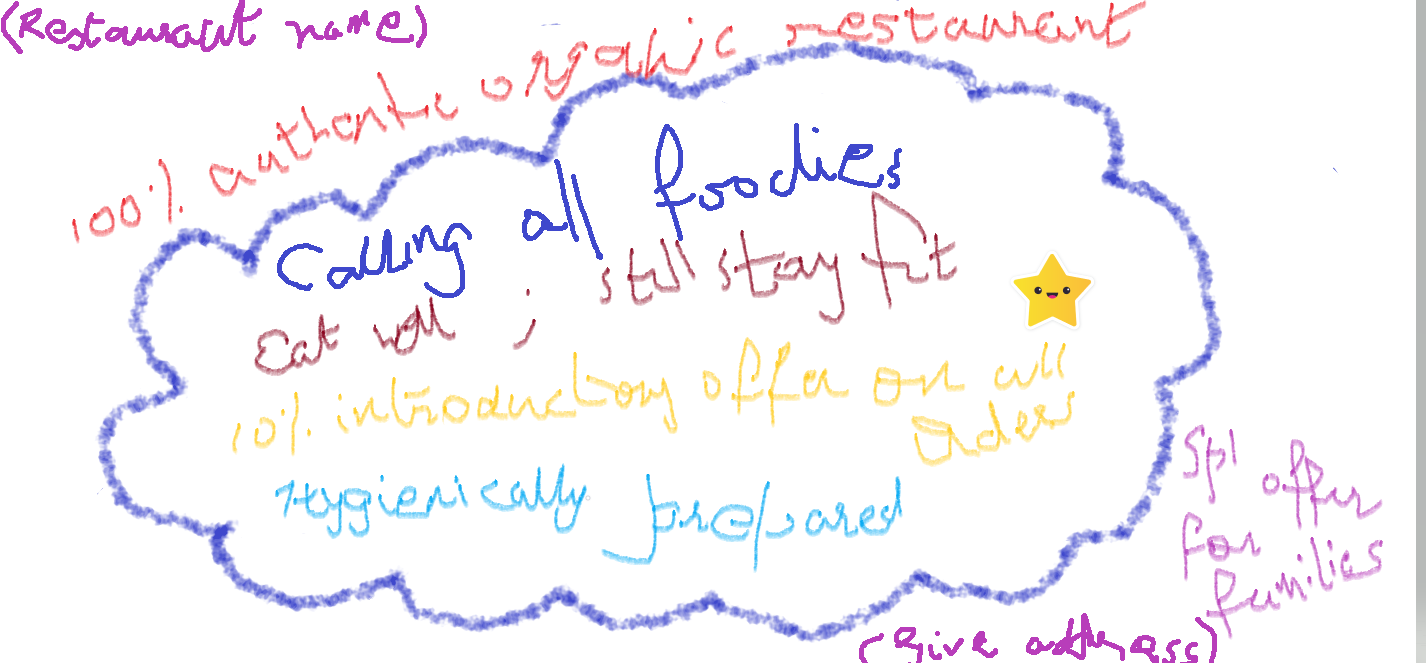 (Restaurant name)
100% authentic organic restaurant
Calling all foodies
Eat well ; still stay fit
10% introductory offer on all
orders
Hygienically prepared
Spl offer
for
families
(Give address)